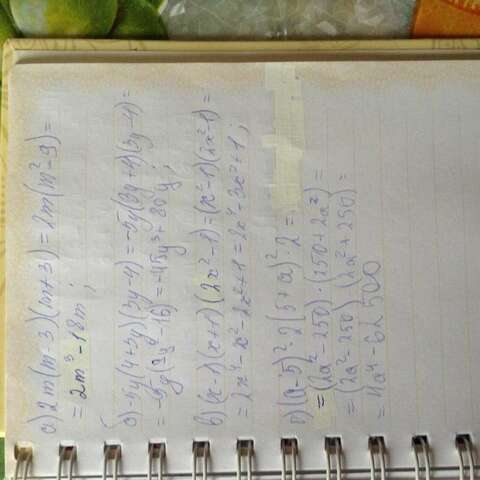 а) 2m(m-3)(m+3)=2m(m²-9)=
=2m³-18m;
б) -5y(4+3y)(3y-4)=-5y(3y+4)(3y-4)=
=-5y(9y²-16)=-45y³+80y;
в) (x-1)(x+1)(2x²-1)=(x²-1)(2x²-1)=
=2x⁴-x²-2x²+1=2x⁴-3x²+1;
г) (a-5)²·2(5+a)²·2=
=(2a²-250)·(250+2a²)=
=(2a²-250)·(2a²+250)=
=4a⁴-62500